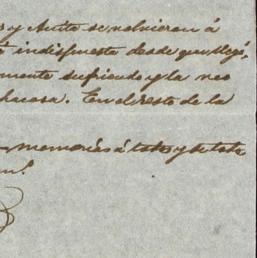 y Anita se volvieron á
indispuesta desde que llegó,
mente sufriendo y la nec
En el resto de la
memorias á todos y de toda